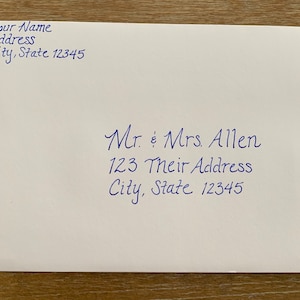 our Name
ddress
ty, State 12345
Mr. & Mrs. Allen
123 Their Address
City, State 12345